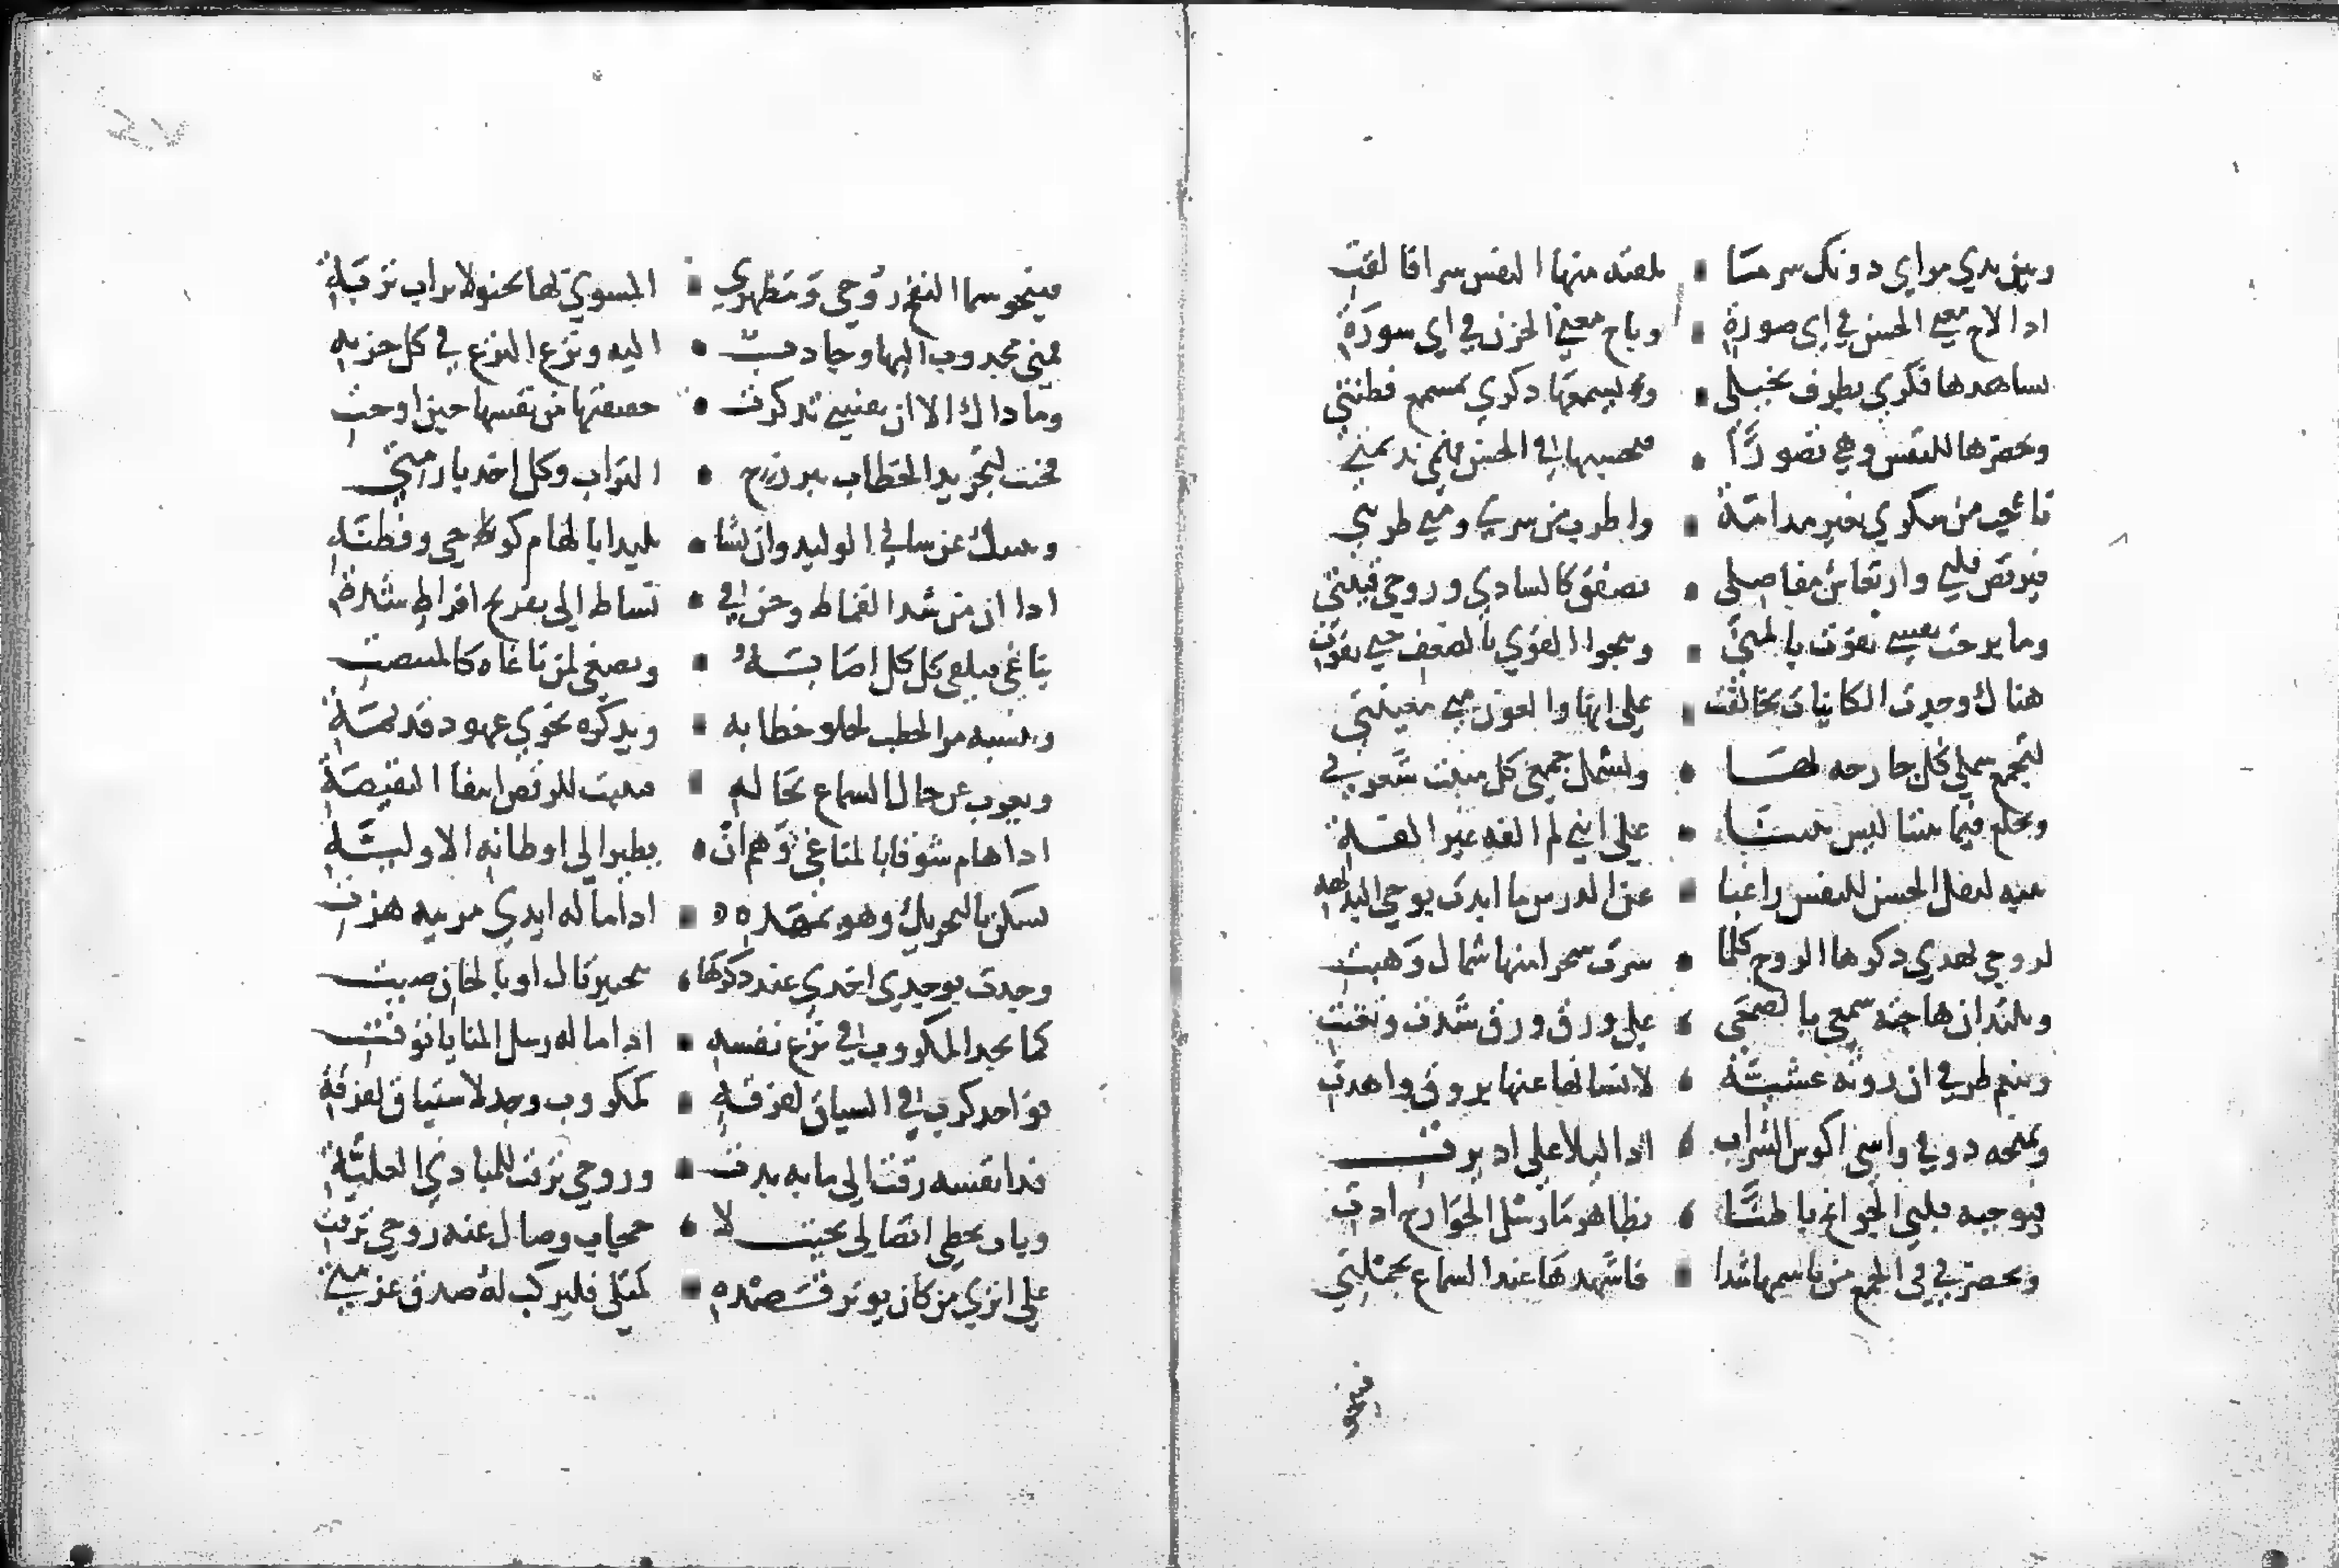 وبين يدي مراي دونك سر مسا تلقته منها النفس سرا فالقت
اذا لاح معنى الحسن في اي صورة وناح معنى الحزن في اي سورة
يساهدها فكري بطرف تخيلي ويسمعها ذكري بمسمع فطنتي
ويحضرها للنفس وهي تصورًا فيحسبها في الحس فهمي نديمتي
فاعجب من سكري بغير مدامة واطرب من سري ومني طربتي
فيرقص قلبي وارتعاش مفاصلي يصفق كالسادي وروحي قينتي
وما برحت نفسي تقوت بالمنى ويمحوا القوي بالضعف حتى تقوت
هناك وجدت الكاينات تحالفت على انها والعون مني معينتي
لتجمع شملي كل جارحه لها وتشمل جمعي كل منبت شعرة
ويخلع فيما بيننا لبس بيننا على انني لم الفه غير الفة
تنبه لنقل الحسن للنفس راغبا عن الدرس ما ابدت بوحي البديهة
لروحي يهدي ذكرها الروح كلما سرت سحرا منها شمال وهبت
ويلتذ ان هاجته سمعي بالضحى على ورق ورق شدت وتغنت
وينعم طرفي ان روته عشية لانسانها عنها بروق واهدت
ويمنحه ذوقي واسي اكوس الشراب اذا ليلا علي اديرت
فيوحيه قلبي الجوانح باطنا بظاهر ما رسل الجوارح ادت
ويحضرني في الجمع من باسمها شدا فاشهدها عند السماع بجملتي
فينحو
فينحو سما النفخ روحي ومظهري المسوي لها يحنو لاتراب تربة
فمني مجدوب اليها وجادب اليه ونزع النزع في كل جذبه
وما داك الا ان نفسي تذكرت حقيقتها من نفسها حين اوحت
فحنت لتجريد الخطاب ببرزخ التراب وكل اخد بازمتي
وينبيك عن ساني الوليد وان نشا بليدا بالهام كوحي وفطنة
اذا ان من شد القماط وحن في نشاط الى تفريج افراط شدة
يناغي فيلغي كل كل اصابه ويصغي لمن ناغاه كالمتنصت
وينسيه مر الخطب حلو خطابه ويذكره نجوي عهود قديمة
ويعرب عن حال السماع بحاله فيثبت للرقص انتفا النقيصة
اذا هام شوقا بالمناغي وهم ان يطير الى اوطانه الاولية
يسكن بالتحريك وهو بمهده اذا ما له ايدي مربيه هزت
وجدت بوجدي اخدي عند ذكرها بتحبير تال او بالحان صيت
كما يجد المكروب في نزع نفسه اذا ما له رسل المنايا توفت
فواجد كرب في السياق لفرقة كمكروب وجد لاشتياق لفرقة
فدا نفسه رقت الى ما به بدت وروحي ترقت للمبادي العلية
وباب تخطي اتصالي بحيث لا حجاب وصال عنه روحي ترقت
على اثري من كان يوثر قصده كمثلي فليركب له صدق عزمتي